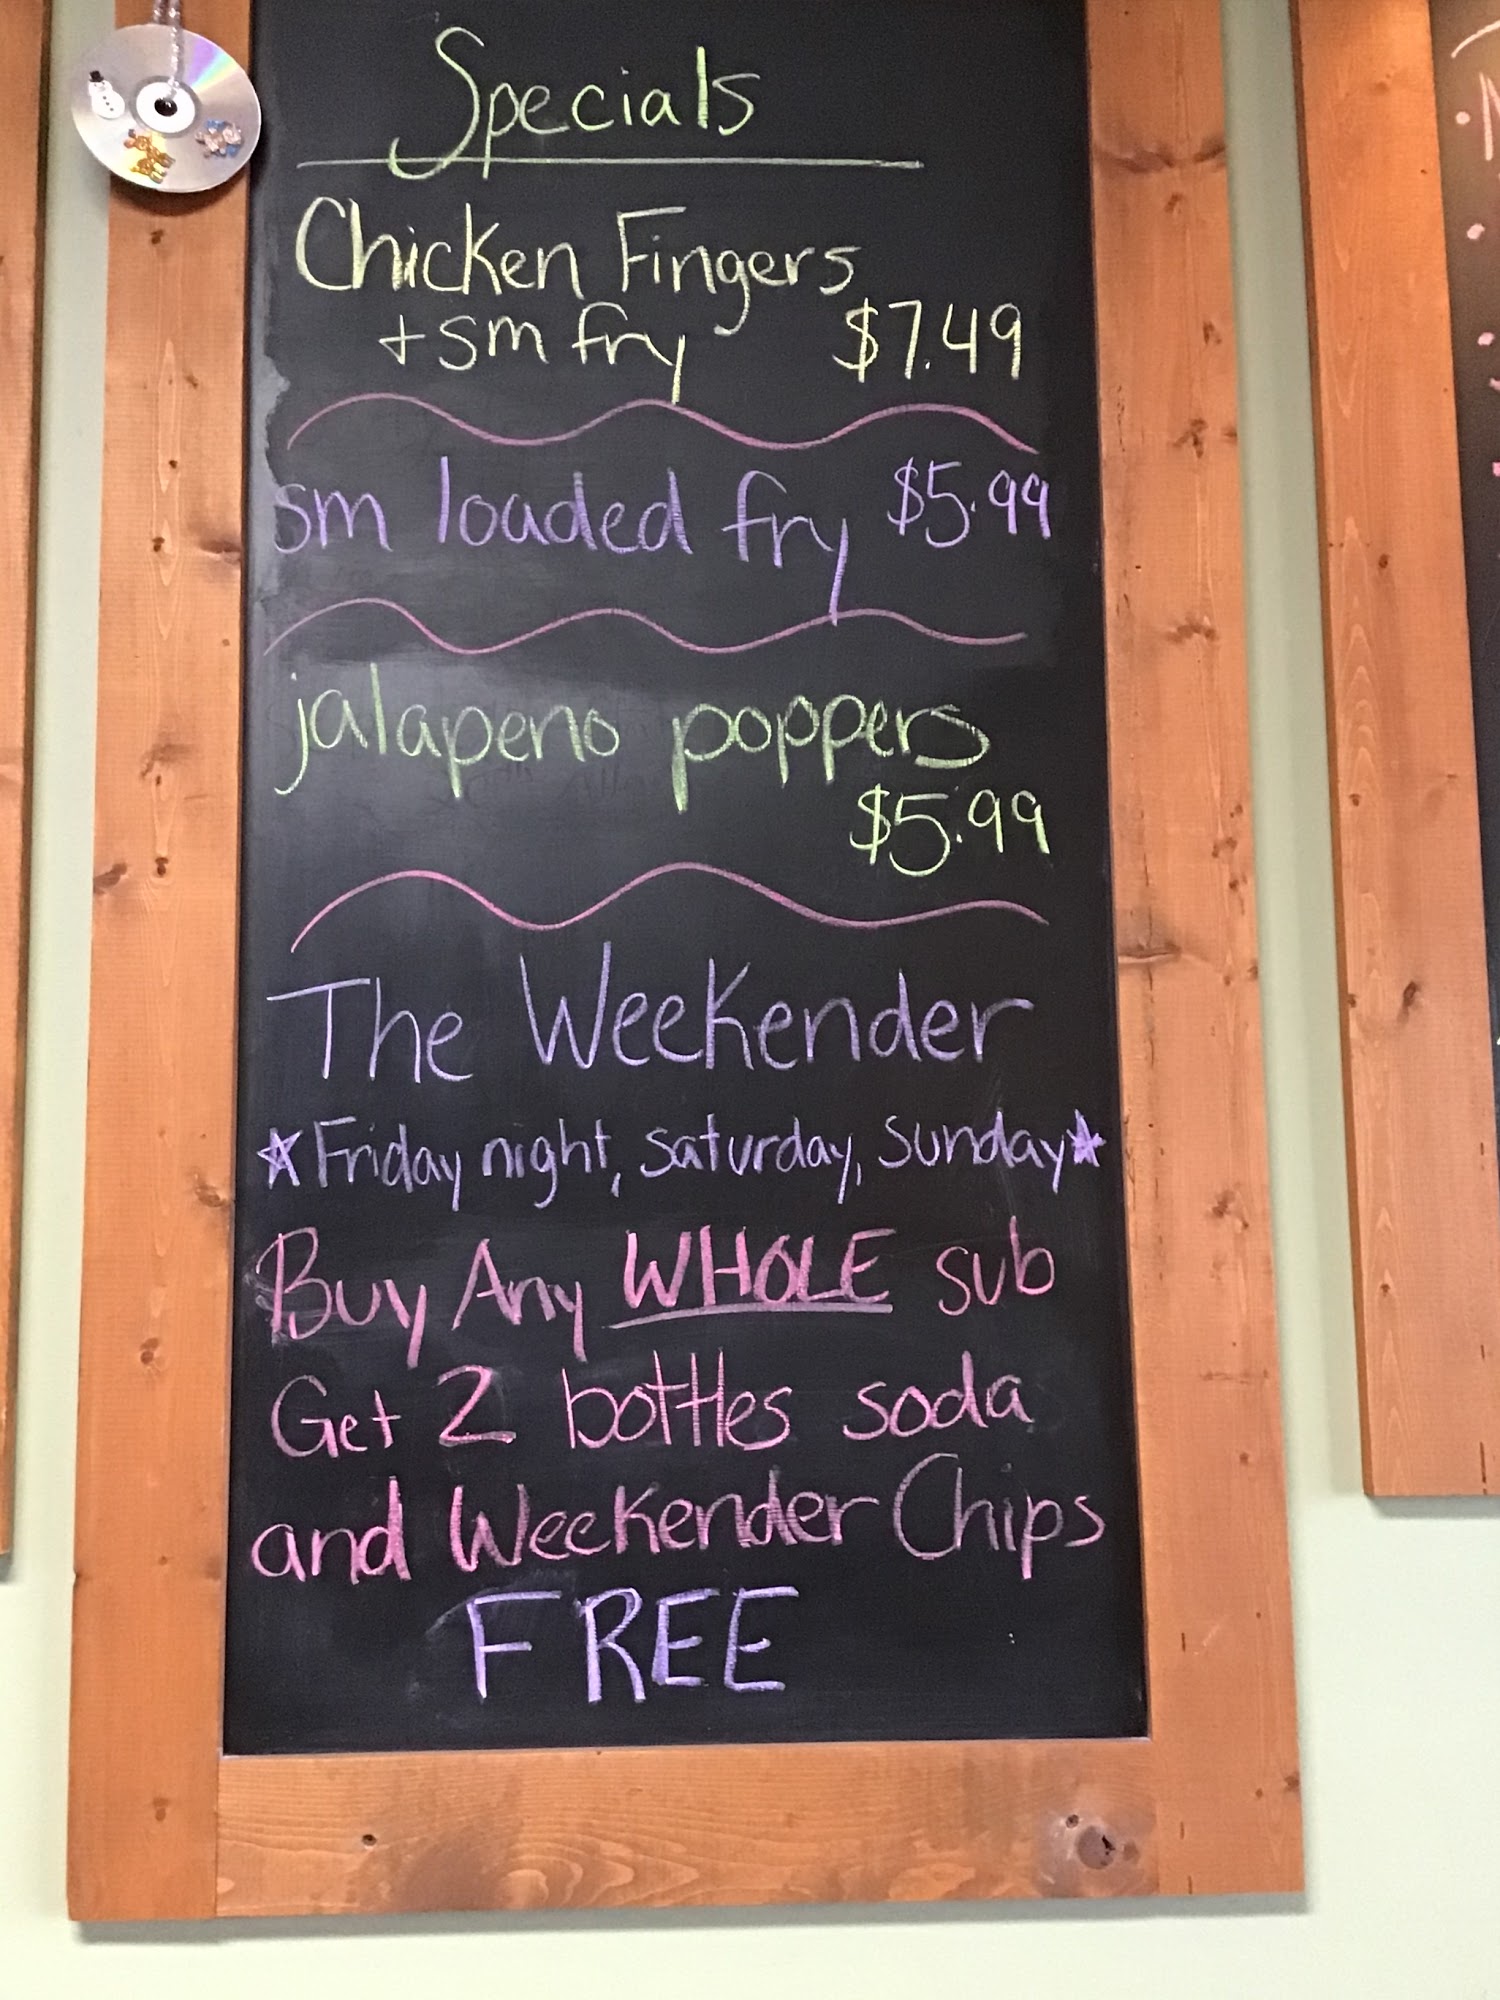 Specials
Chicken Fingers
+ sm fry $7.49
sm loaded fry $5.99
jalapeno poppers
$5.99
The Weekender
☆Friday night, Saturday, Sunday☆
Buy Any WHOLE sub
Get 2 bottles soda
and Weekender Chips
FREE